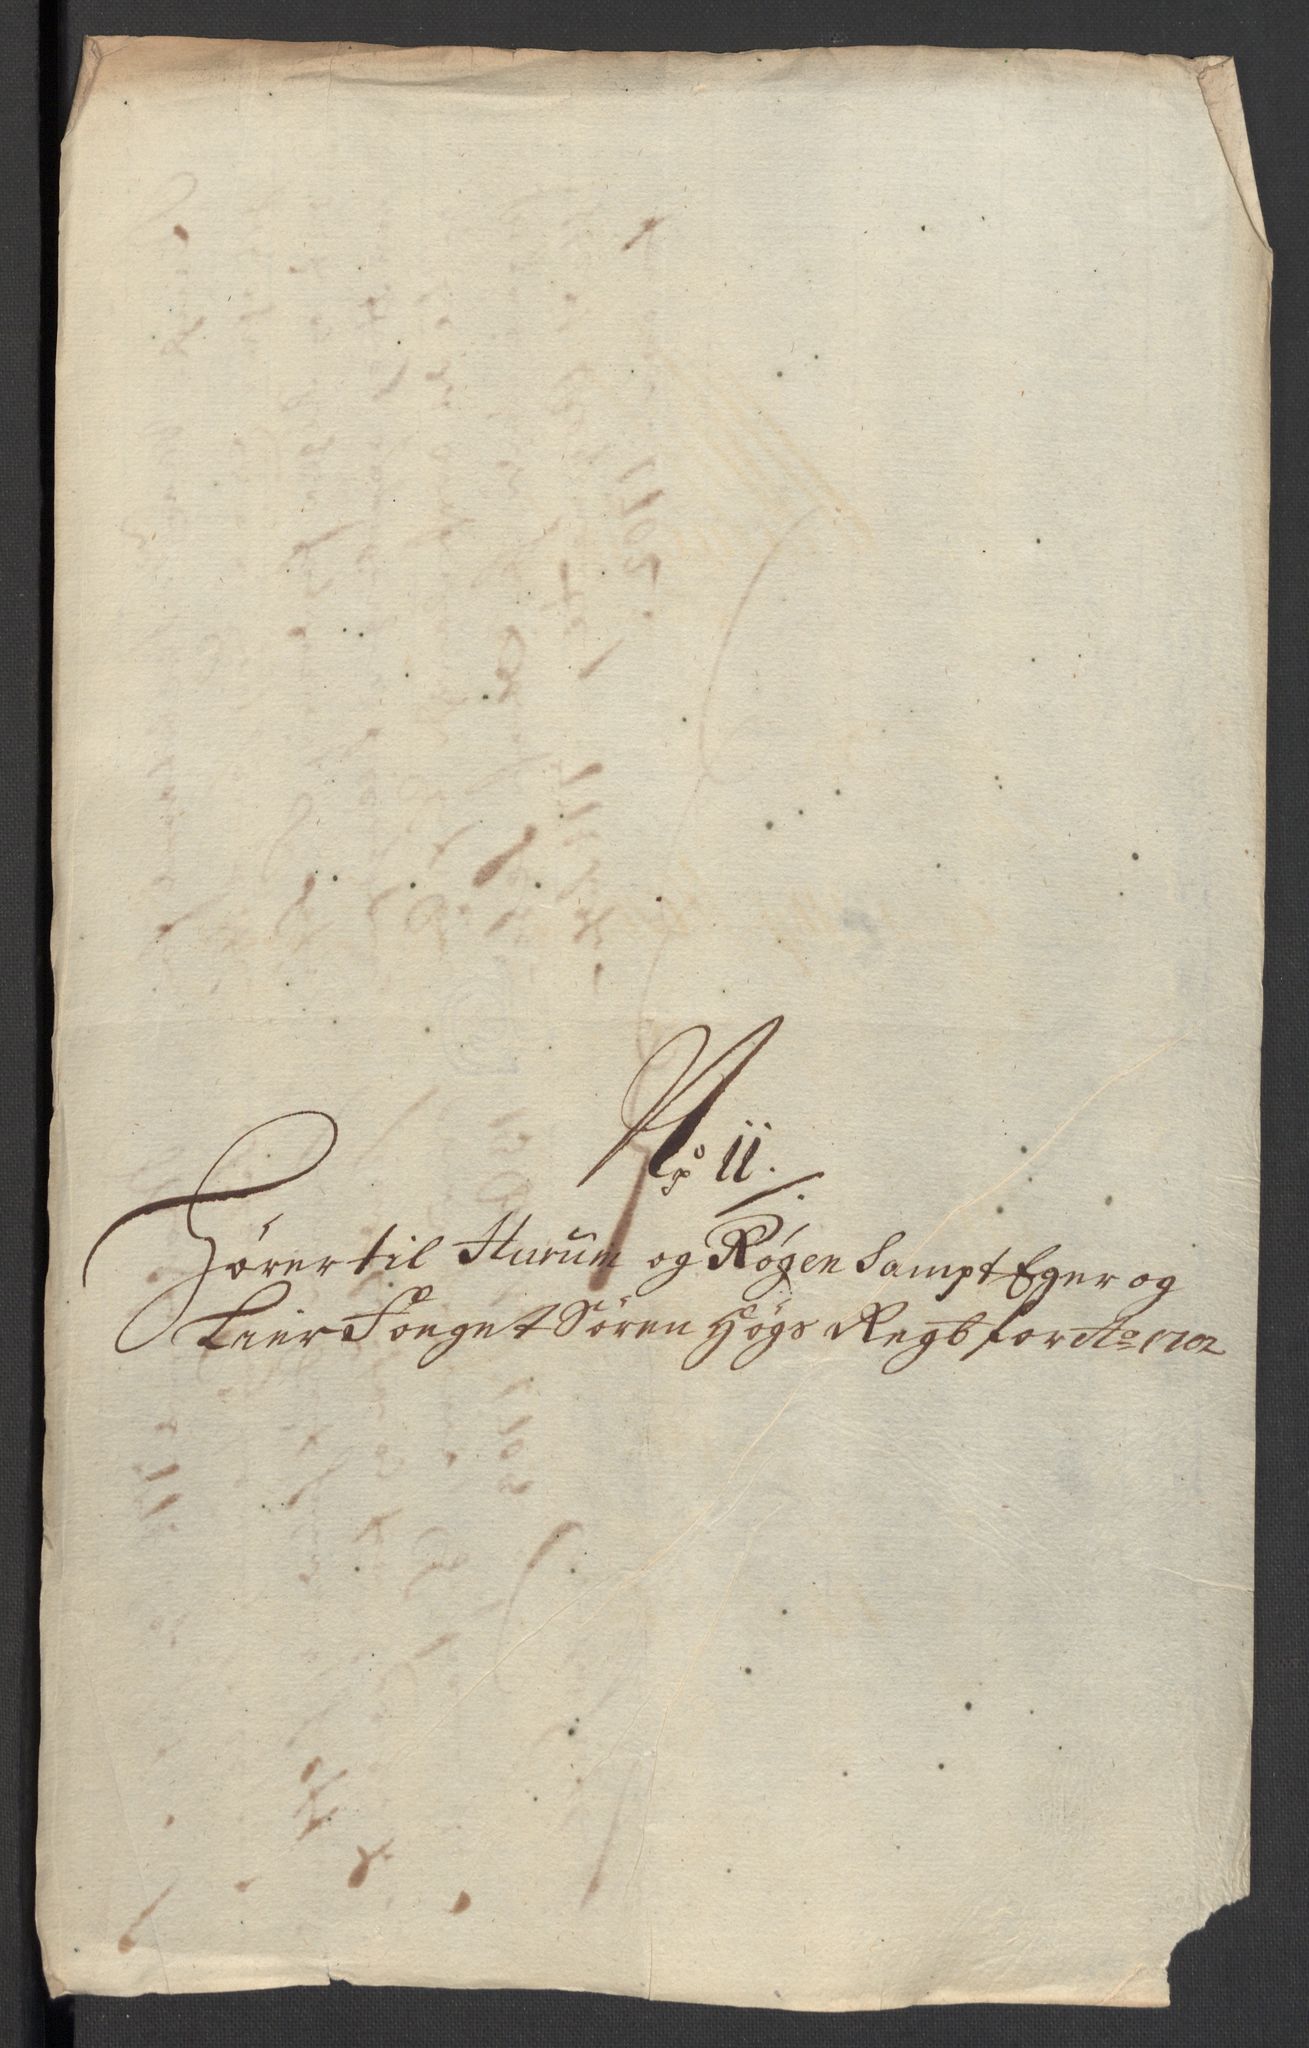 No 11.
Hører til Hurum og Røgen Sampt Eger og
Lier Foget Søren Høgs Regsb for Ao 1702